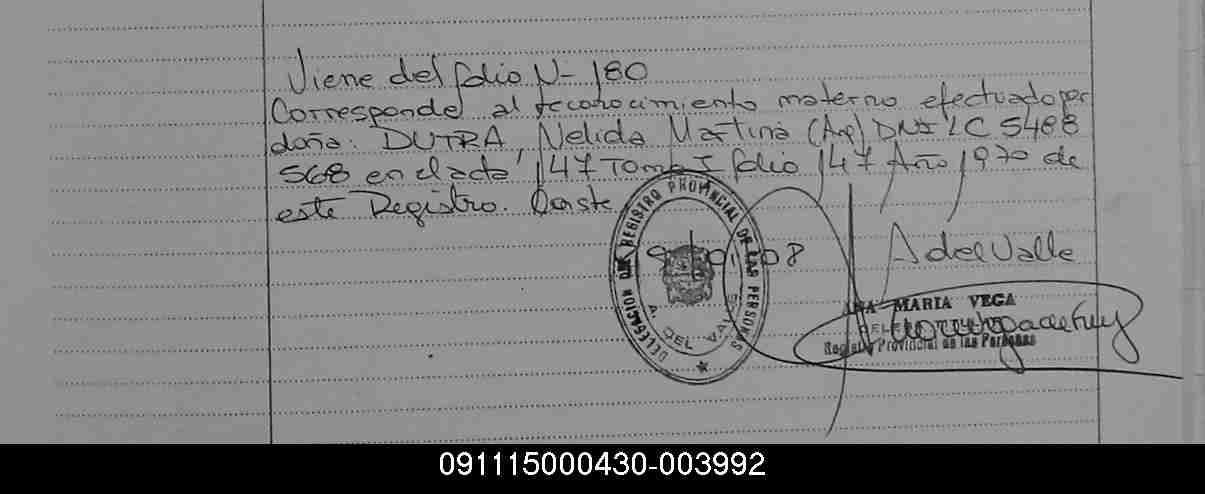 Viene del folio N- 180
Corresponde al reconocimiento materno efectuado por
doña: DUTRA, Nelida Martina (Arg) DNI LC 5488
568 en el acta 147 Tomo I folio 147 Año 1970 de
este Registro. Conste
DELEGACION DEL REGISTRO PROVINCIAL DE LAS PERSONAS
A. DEL VALLE
A del Valle
ANA MARIA VEGA
Registro Provincial de las Personas
091115000430-003992